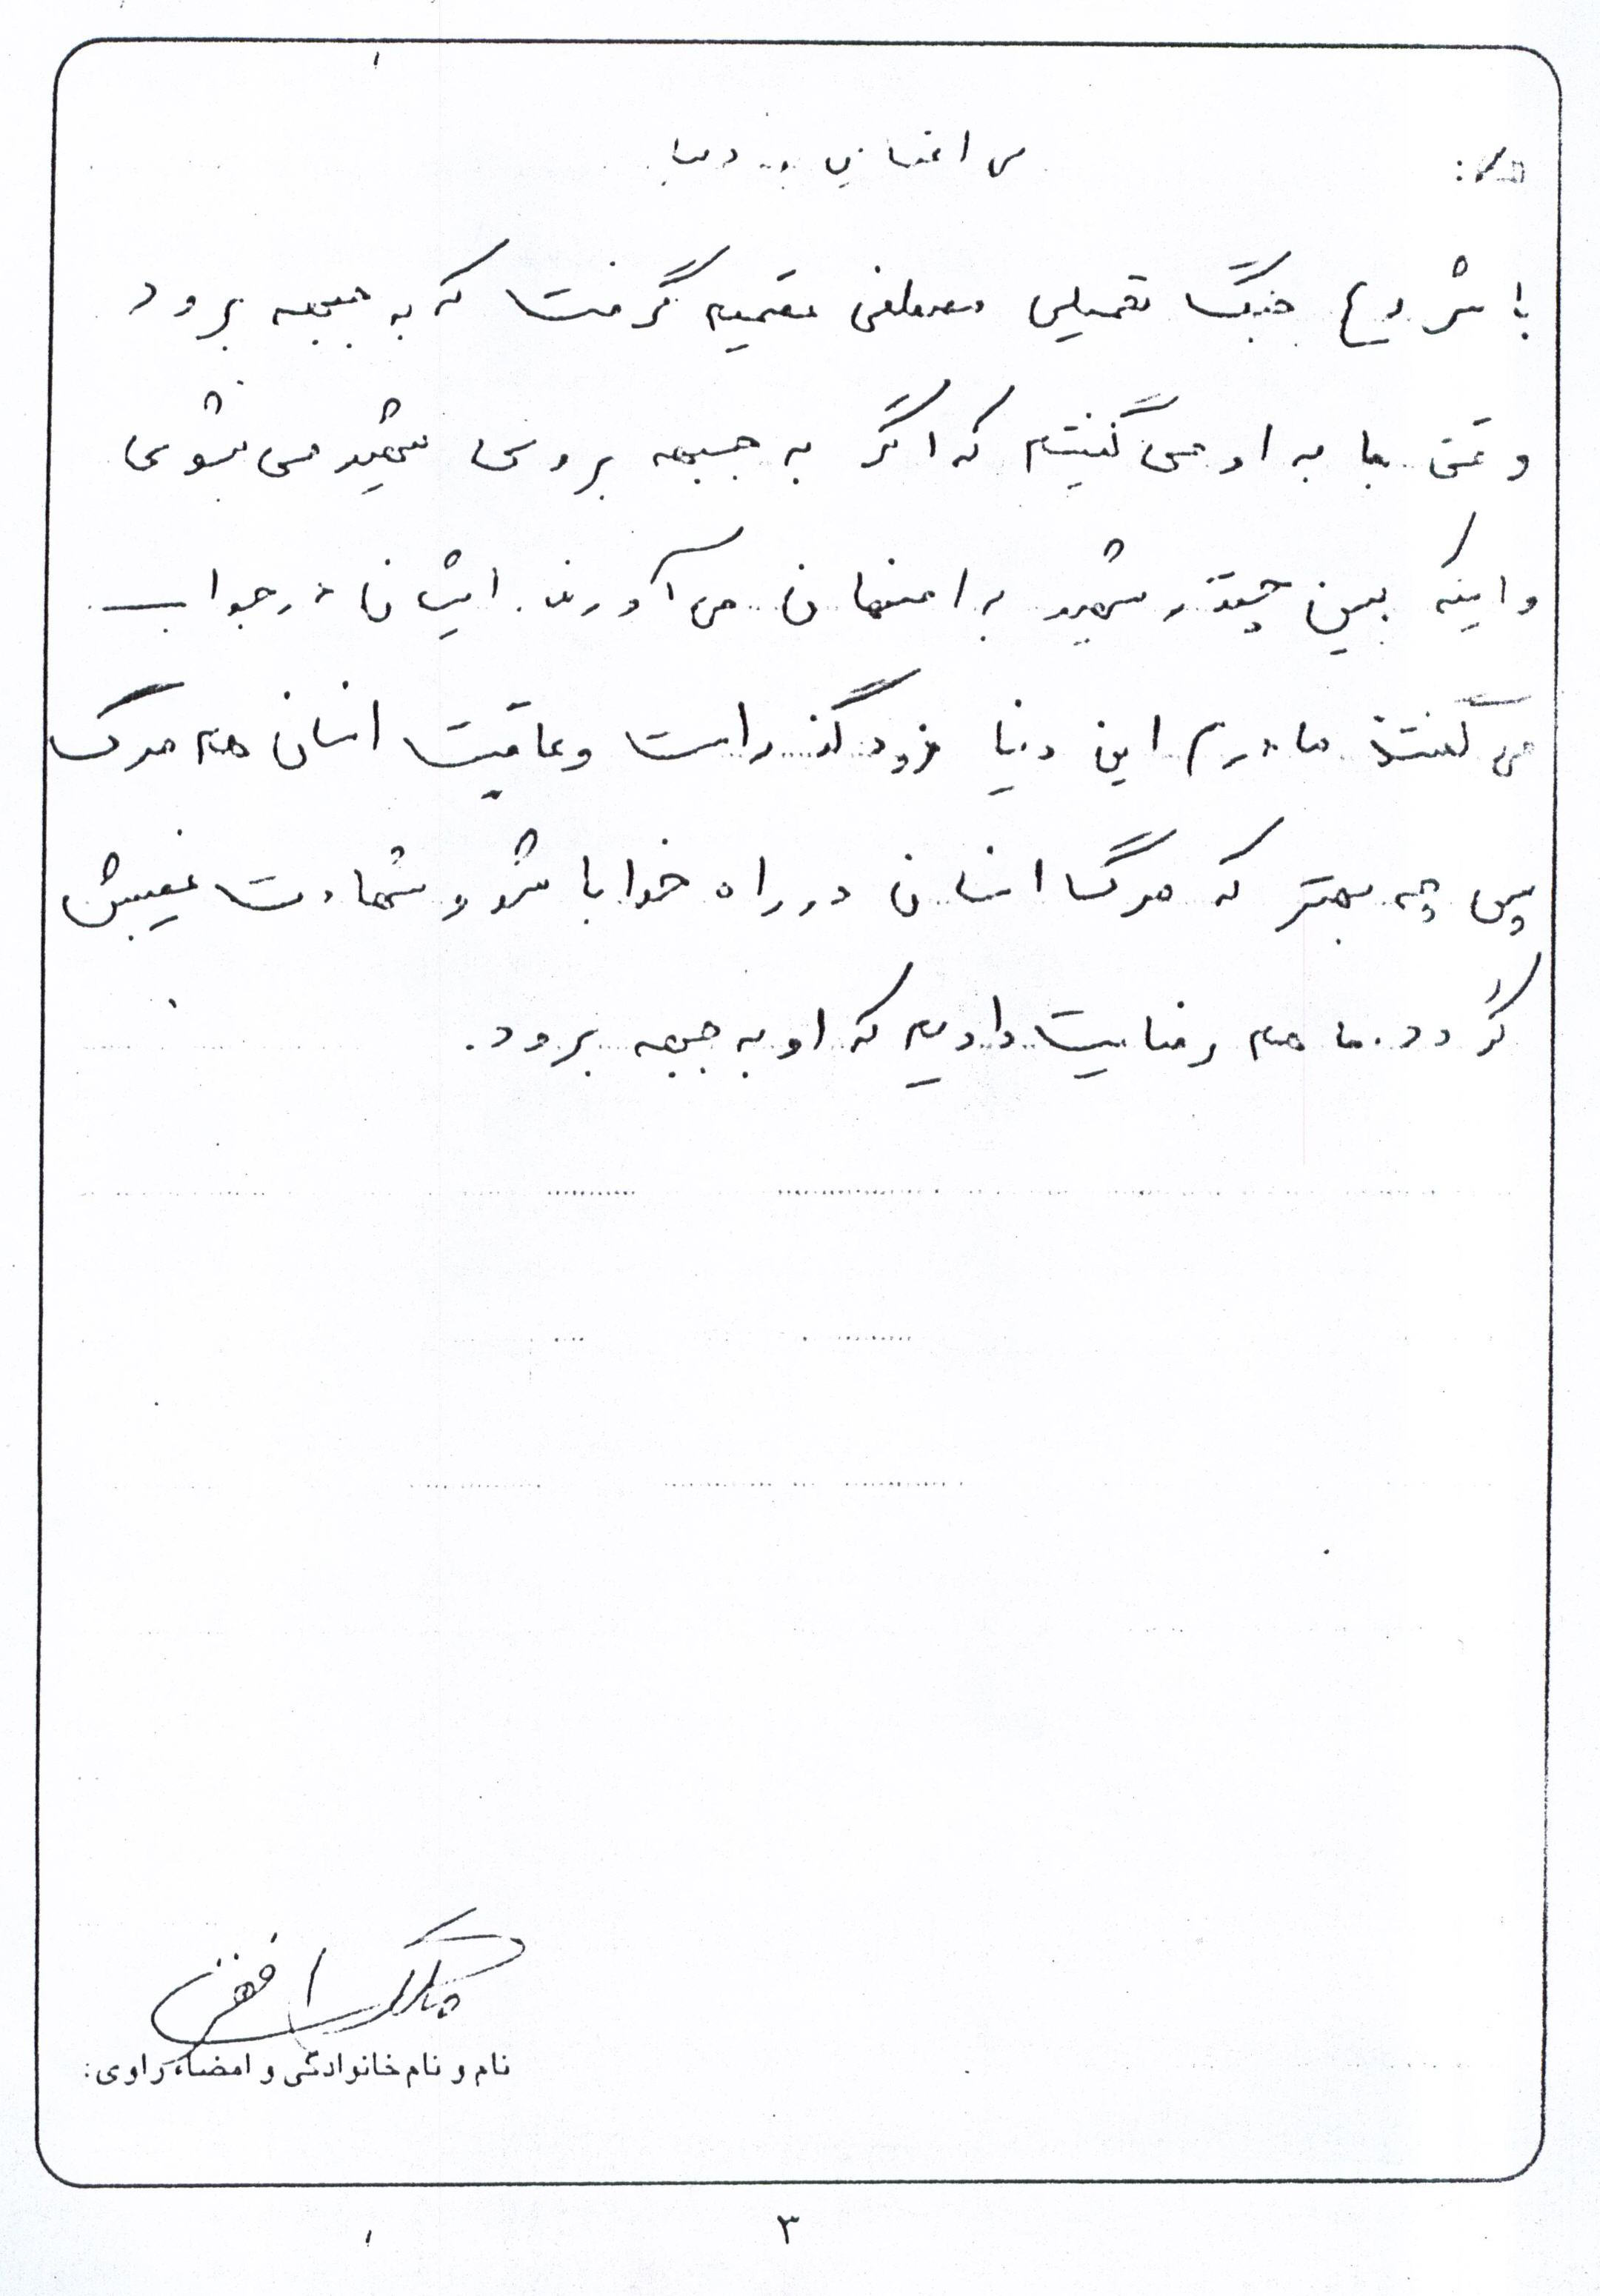 بی اعتنایی به دنیا
با شروع جنگ تحمیلی مصطفی تصمیم گرفت که به جبهه برود
وقتی ما به او می گفتیم که اگر به جبهه بروی شهید می شوی
و اینکه ببین چقدر شهید به اصفهان می آورند. ایشان در جواب
می گفتند مادرم این دنیا زود گذر است و عاقبت انسان هم مرگ
پس چه بهتر که مرگ انسان در راه خدا باشد و شهادت نصیبش
گردد. ما هم رضایت دادیم که او به جبهه برود.
نام و نام خانوادگی و امضاء راوی:
۳